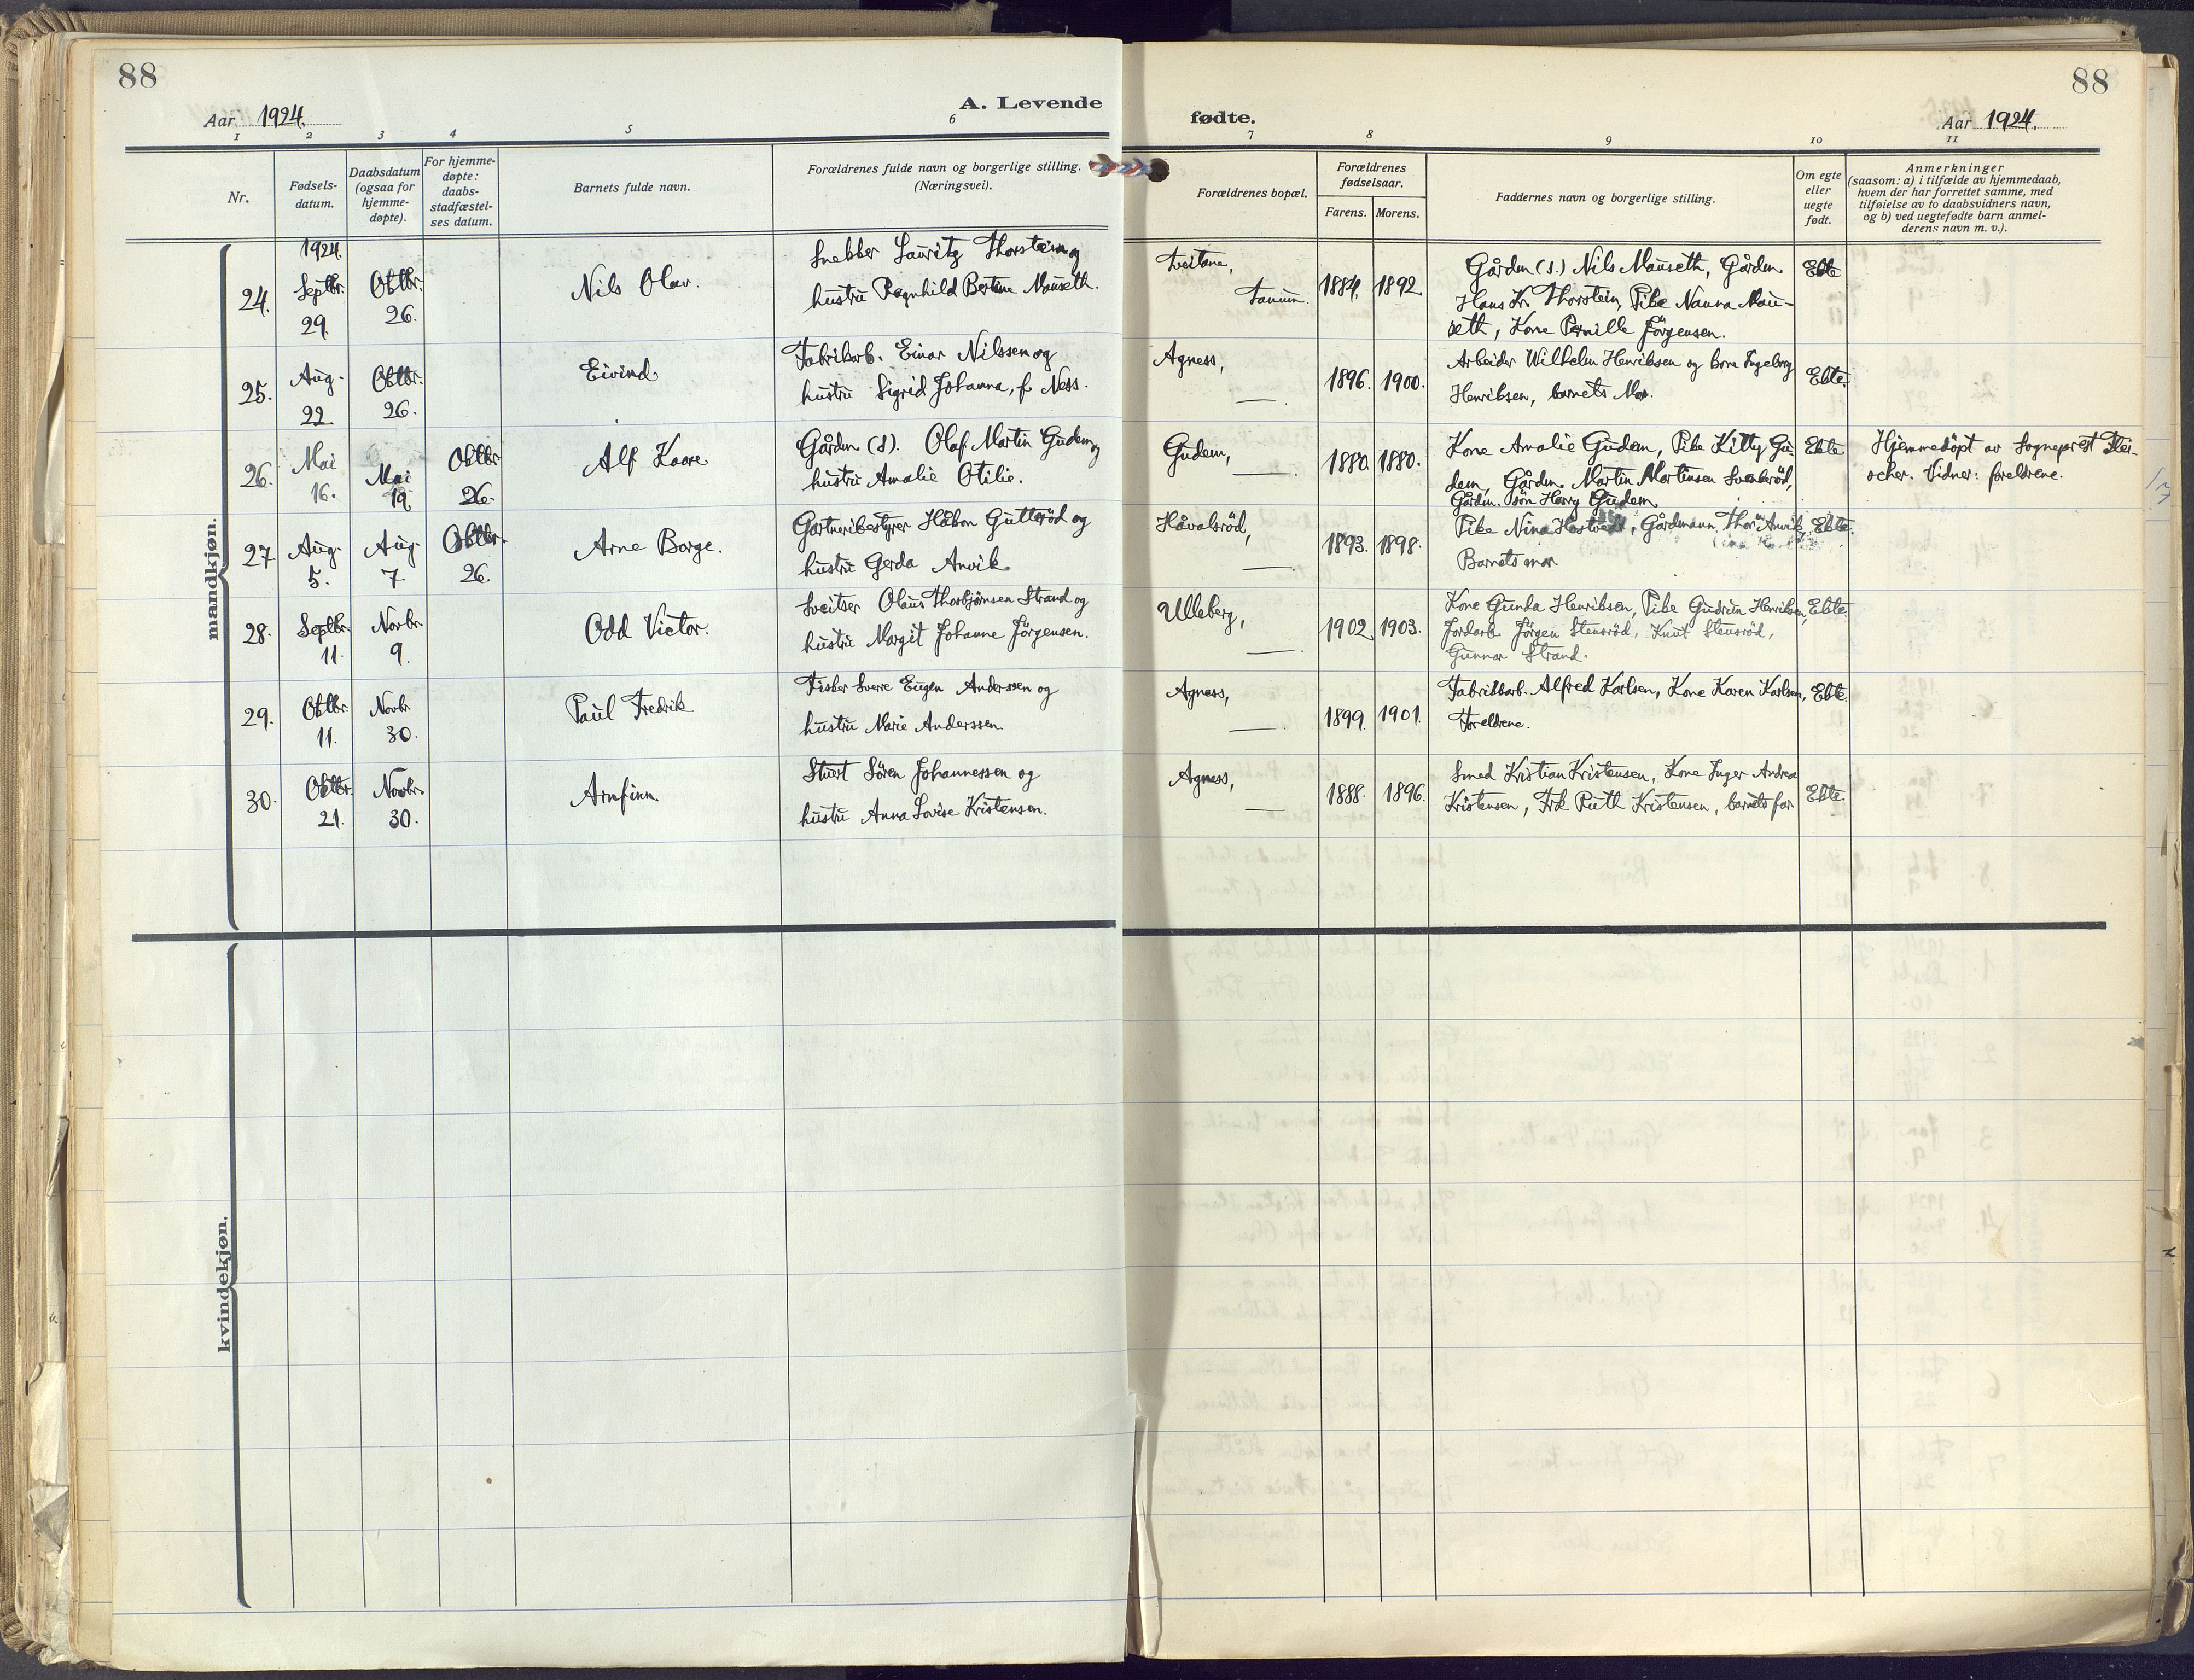 88
88
A. Levende fødte.
Aar 1924.
Aar 1924.
1 2 3 4 5 6 7 8 9 10 11
Nr.
Fødsels-
datum.
Daabsdatum
(ogsaa for
hjemme-
døpte).
For hjemme-
døpte:
daabs-
stadfæstel-
ses datum.
Barnets fulde navn.
Forældrenes fulde navn og borgerlige stilling.
(Næringsvei).
Forældrenes bopæl.
Forældrenes
fødselsaar.
Farens. Morens.
Faddernes navn og borgerlige stilling.
Om egte
eller
uegte
født.
Anmerkninger
(saasom: a) i tilfælde av hjemmedaab,
hvem der har forrettet samme, med
tilføielse av to daabsvidners navn,
og b) ved uegtefødte barn anmel-
derens navn m. v.).
mandkjøn.
1924.
24. Septbr. 29. Oktbr. 26.
Nils Olav.
Snekker Lauritz Thorstein og
hustru Ragnhild Bertine Mauseth.
Tveitane,
Tanum.
1884. 1892.
Gårdm (s.) Nils Mauseth, Gårdm.
Hans Kr. Thorstein, Pike Nanna Mau-
seth, Kone Pernille Jörgensen.
Ekte
25. Aug. 22. Oktbr. 26.
Eivind
Fabrikarb. Einar Nilssen og
hustru Sigrid Johanna, f. Ness.
Agness,
—
1896. 1900.
Arbeider Wilhelm Henriksen og kone Ingeborg
Henriksen, barnets Mor.
Ekte.
26. Mai 16. Mai 19 Oktbr. 26.
Alf Kaare
Gårdm (s). Olaf Martin Gudem og
hustru Amalie Otilie.
Gudem,
—
1880. 1880.
Kone Amalie Gudem, Pike Kitty Gu-
dem, Gårdm. Martin Martinsen Svenkeröd,
Gårdm. sön Harry Gudem.
Ekte
Hjemmedöpt av Sogneprest Flei-
scher. Vidner: foreldrene.
27 Aug. 5. Aug. 7. Oktbr. 26.
Arne Borge.
Gartneribestyrer Håkon Gutteröd og
hustru Gerda Anvik
Håvalsröd,
—
1893. 1898.
Pike Nina Hostvedt, Gårdmann Thor Anvik,
Barnets mor.
Ekte.
28. Septbr. 11. Novbr. 9.
Odd Victor.
Sveitser Olaus Thorbjörnsen Strand og
hustru Margit Johanne Jörgensen.
Ulleberg,
—
1902. 1903.
Kone Gunda Henriksen, Pike Gudrun Henriksen,
Jordarb. Jörgen Stensröd, Knut Stensröd,
Gunnar Strand.
Ekte
29. Oktbr. 11. Novbr 30.
Paul Fredrik
Fisker Sverre Eugen Anderssen og
hustru Marie Anderssen.
Agness,
—
1899. 1901.
Fabrikkarb. Alfred Karlsen, Kone Karen Karlsen,
Foreldrene.
Ekte.
30. Oktbr. 21. Novbr. 30.
Arnfinn.
Stuert Sören Johannessen og
hustru Anna Lovise Kristensen.
Agness,
—
1888. 1896.
Smed Kristian Kristensen, Kone Inger Andrea
Kristensen, Frk Ruth Kristensen, barnets far
Ekte
kvindekjøn.